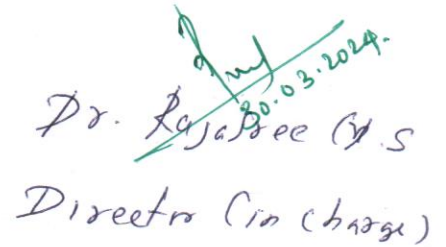 30.03.2024.
Dr. Rajasree M.S
Director (in charge)